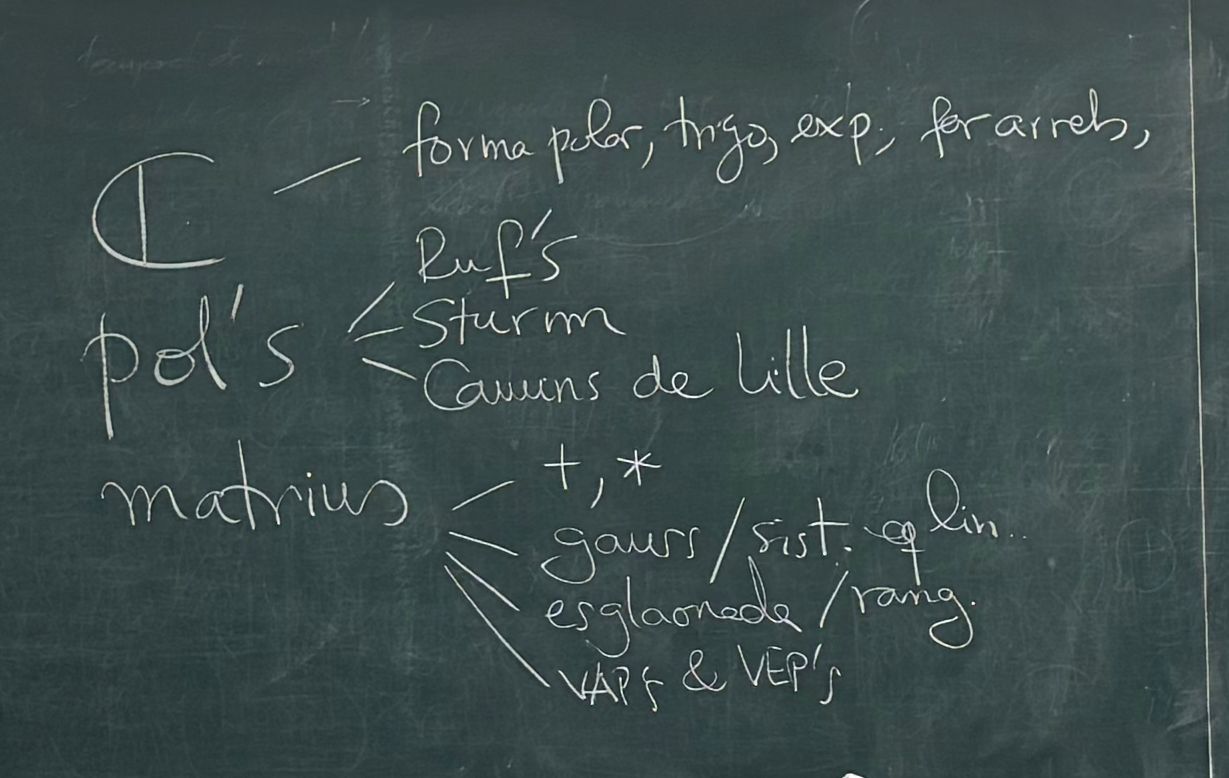 ℂ — forma polar, trigo, exp., fer arrels,
pol's
Ruf's
Sturm
Camins de Lille
matrius
+, *
gauss / sist. eq lin..
esglaonada / rang.
VAPs & VEP's